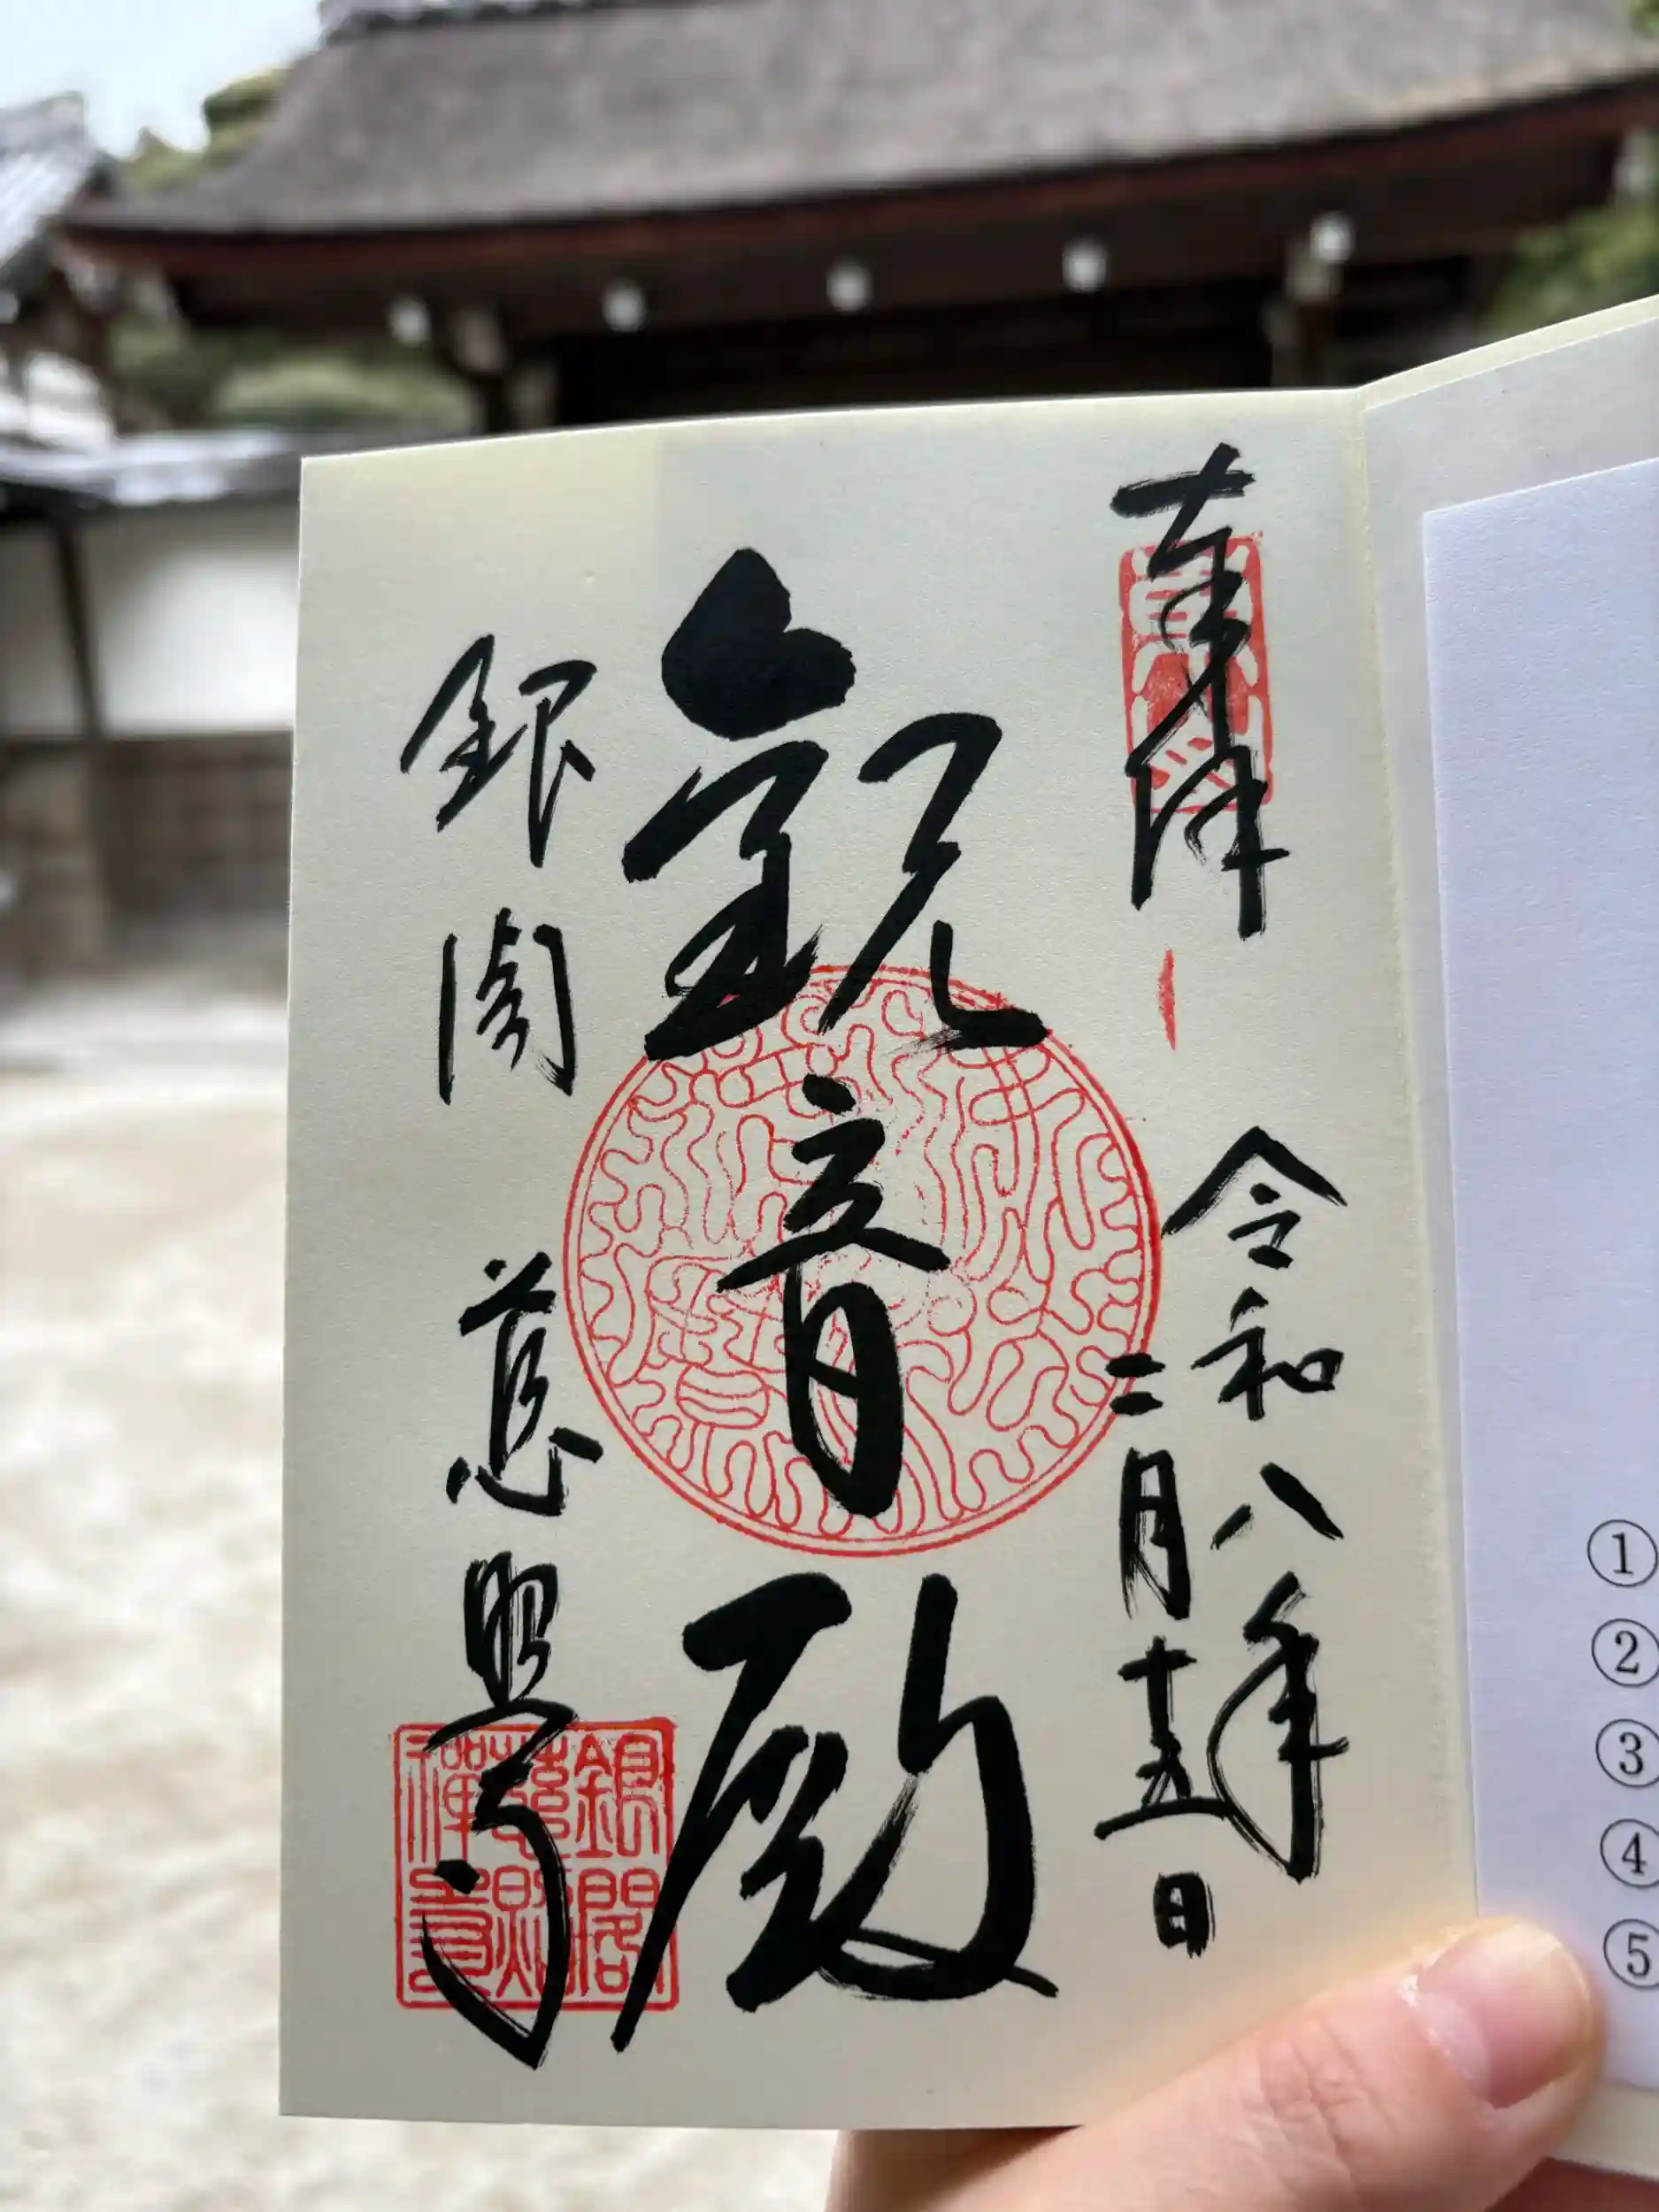 奉拝
令和八年
二月十五日
観音殿
銀閣 慈照寺
銀閣
慈照
禅寺
①
②
③
④
⑤